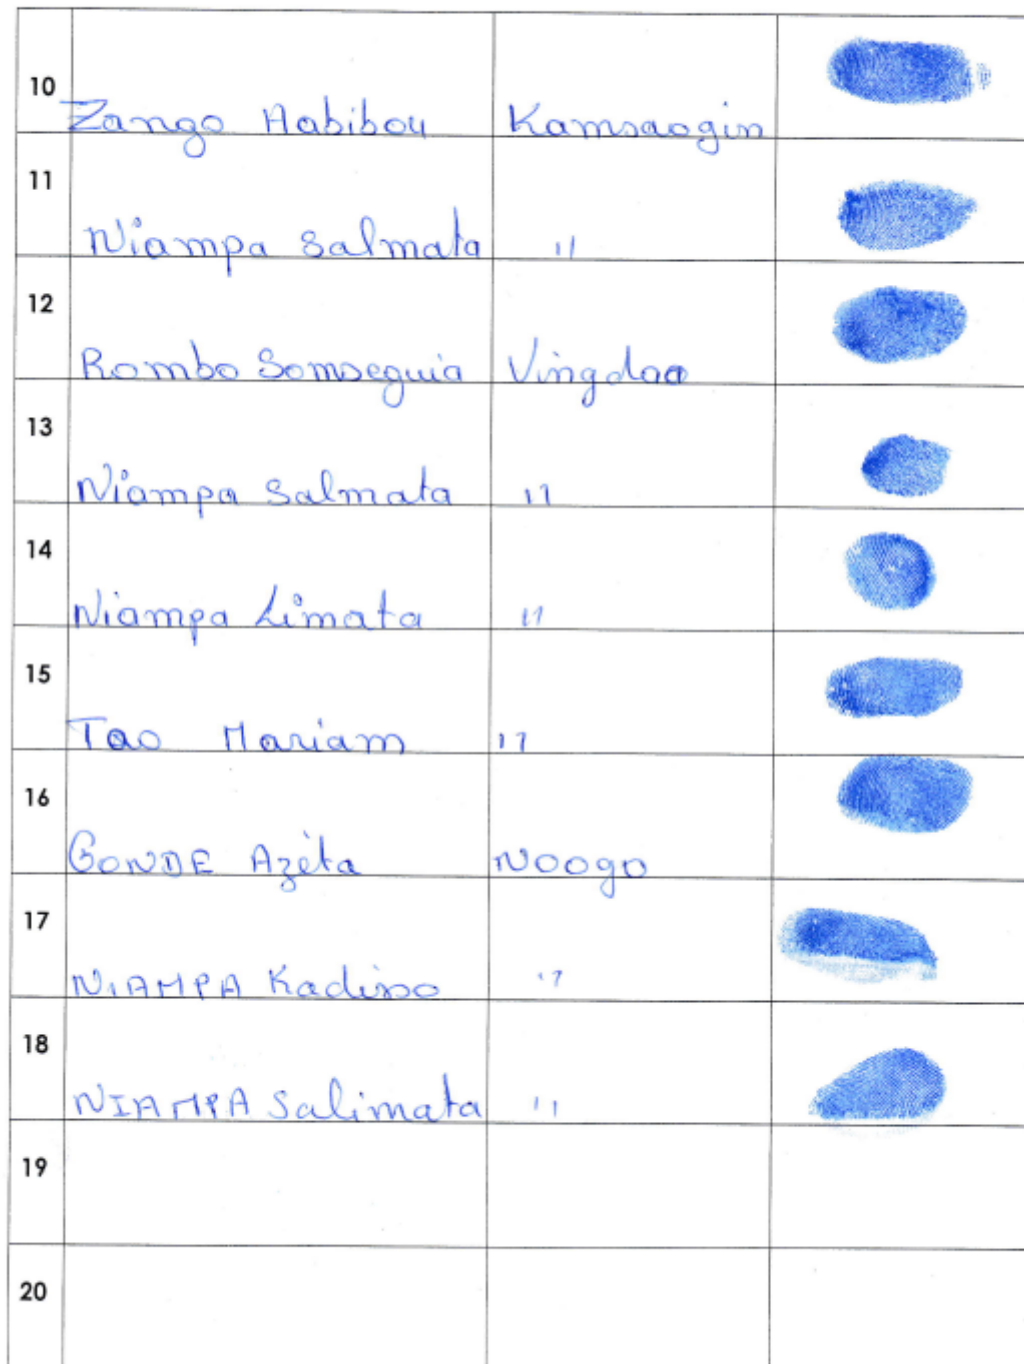 10 Zango Habibou Kamsaogin
11 Niampa Salmata "
12 Rombo Somseguia Vingdaa
13 Niampa Salmata "
14 Niampa Limata "
15 Tao Mariam "
16 GONDE Azèta Noogo
17 NIAMPA Kadiso "
18 NIAMPA Salimata "
19
20